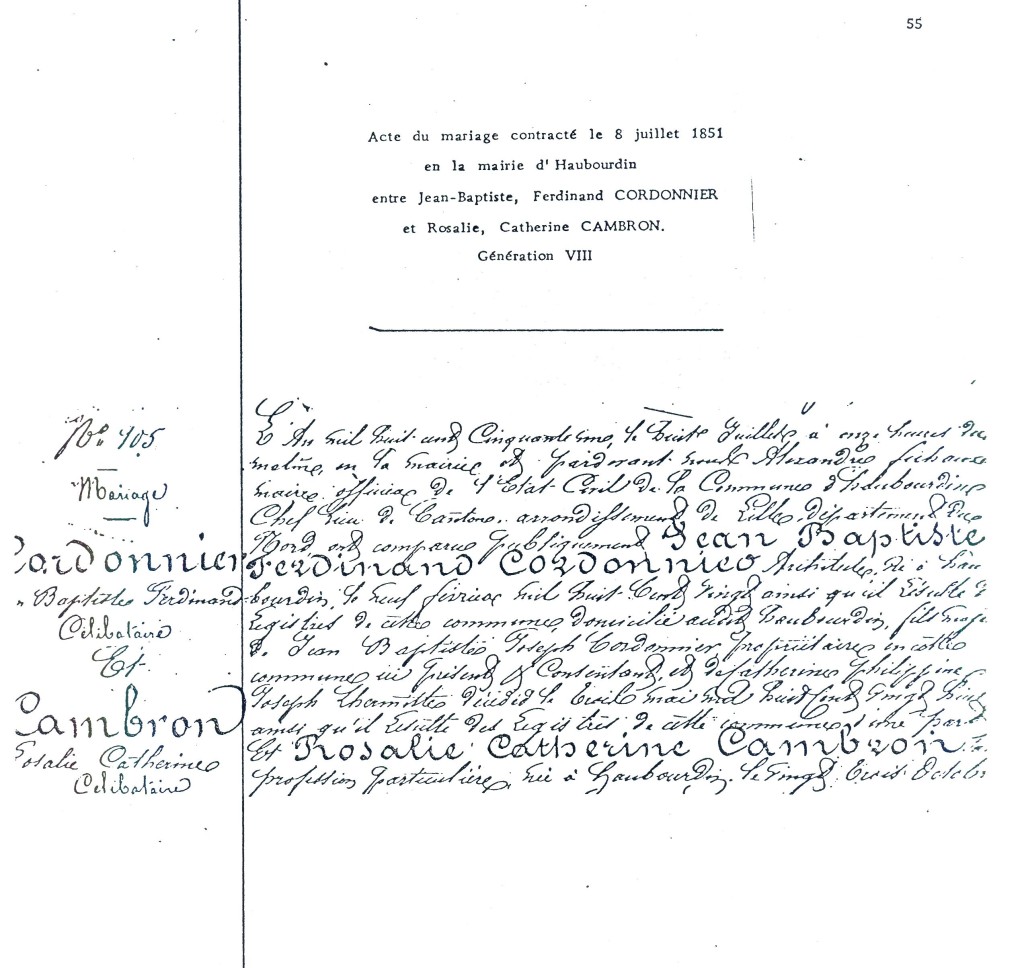 55
Acte du mariage contracté le 8 juillet 1851
en la mairie d'Haubourdin
entre Jean-Baptiste, Ferdinand CORDONNIER
et Rosalie, Catherine CAMBRON.
Génération VIII
N° 105
Mariage
Cordonnier
Baptiste Ferdinand
Célibataire
Et
Cambron
Rosalie Catherine
Célibataire
L'An mil huit cent Cinquante un, le huit Juillet, à onze heures du
matin, en la mairie et pardevant nous Alexandre
maire officier de l'Etat Civil de la Commune d'Haubourdin
Chef lieu de Canton, arrondissement de Lille, département du
Nord est comparu publiquement Jean Baptiste
Ferdinand Cordonnier Architecte, né à hau
bourdin, le neuf février mil huit Cent vingt ainsi qu'il résulte
registres de cette commune, domicilié audit haubourdin, fils
de Jean Baptiste Joseph Cordonnier, propriétaire en cette
commune ici présent & Consentant, et de Catherine philippine
Joseph Lhermitte décédée le trois mai mil huit Cent vingt
ainsi qu'il résulte des registres de cette commune, d'une part
Et Rosalie Catherine Cambron
profession particulière, née à haubourdin, le vingt trois Octob